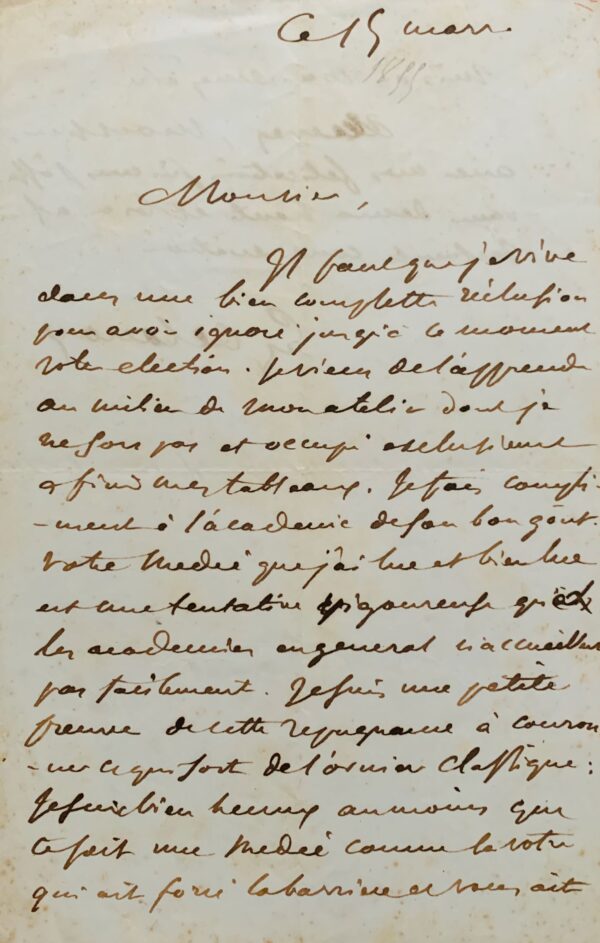 Ce 15 mars
1855
Monsieur,
Il faut que je vive
dans une bien complette réclusion
pour avoir ignoré jusqu'à ce moment
votre election. Je viens de l'apprendre
au milieu de mon atelier dont je
ne sors pas et occupé exclusivement
a finir mes tableaux. Je fais compli-
-ment à l'academie de son bon goût.
Votre Medée que j'ai lue et bien lue
est une tentative vigoureuse que
les academies en general n'accueillent
pas facilement. Je suis une petite
preuve de cette repugnance à couron
-ner ce qui sort de l'ornière classique :
Je suis bien heureux au moins que
ce soit une Medée comme la votre
qui ait forcé la barrière et vous ait